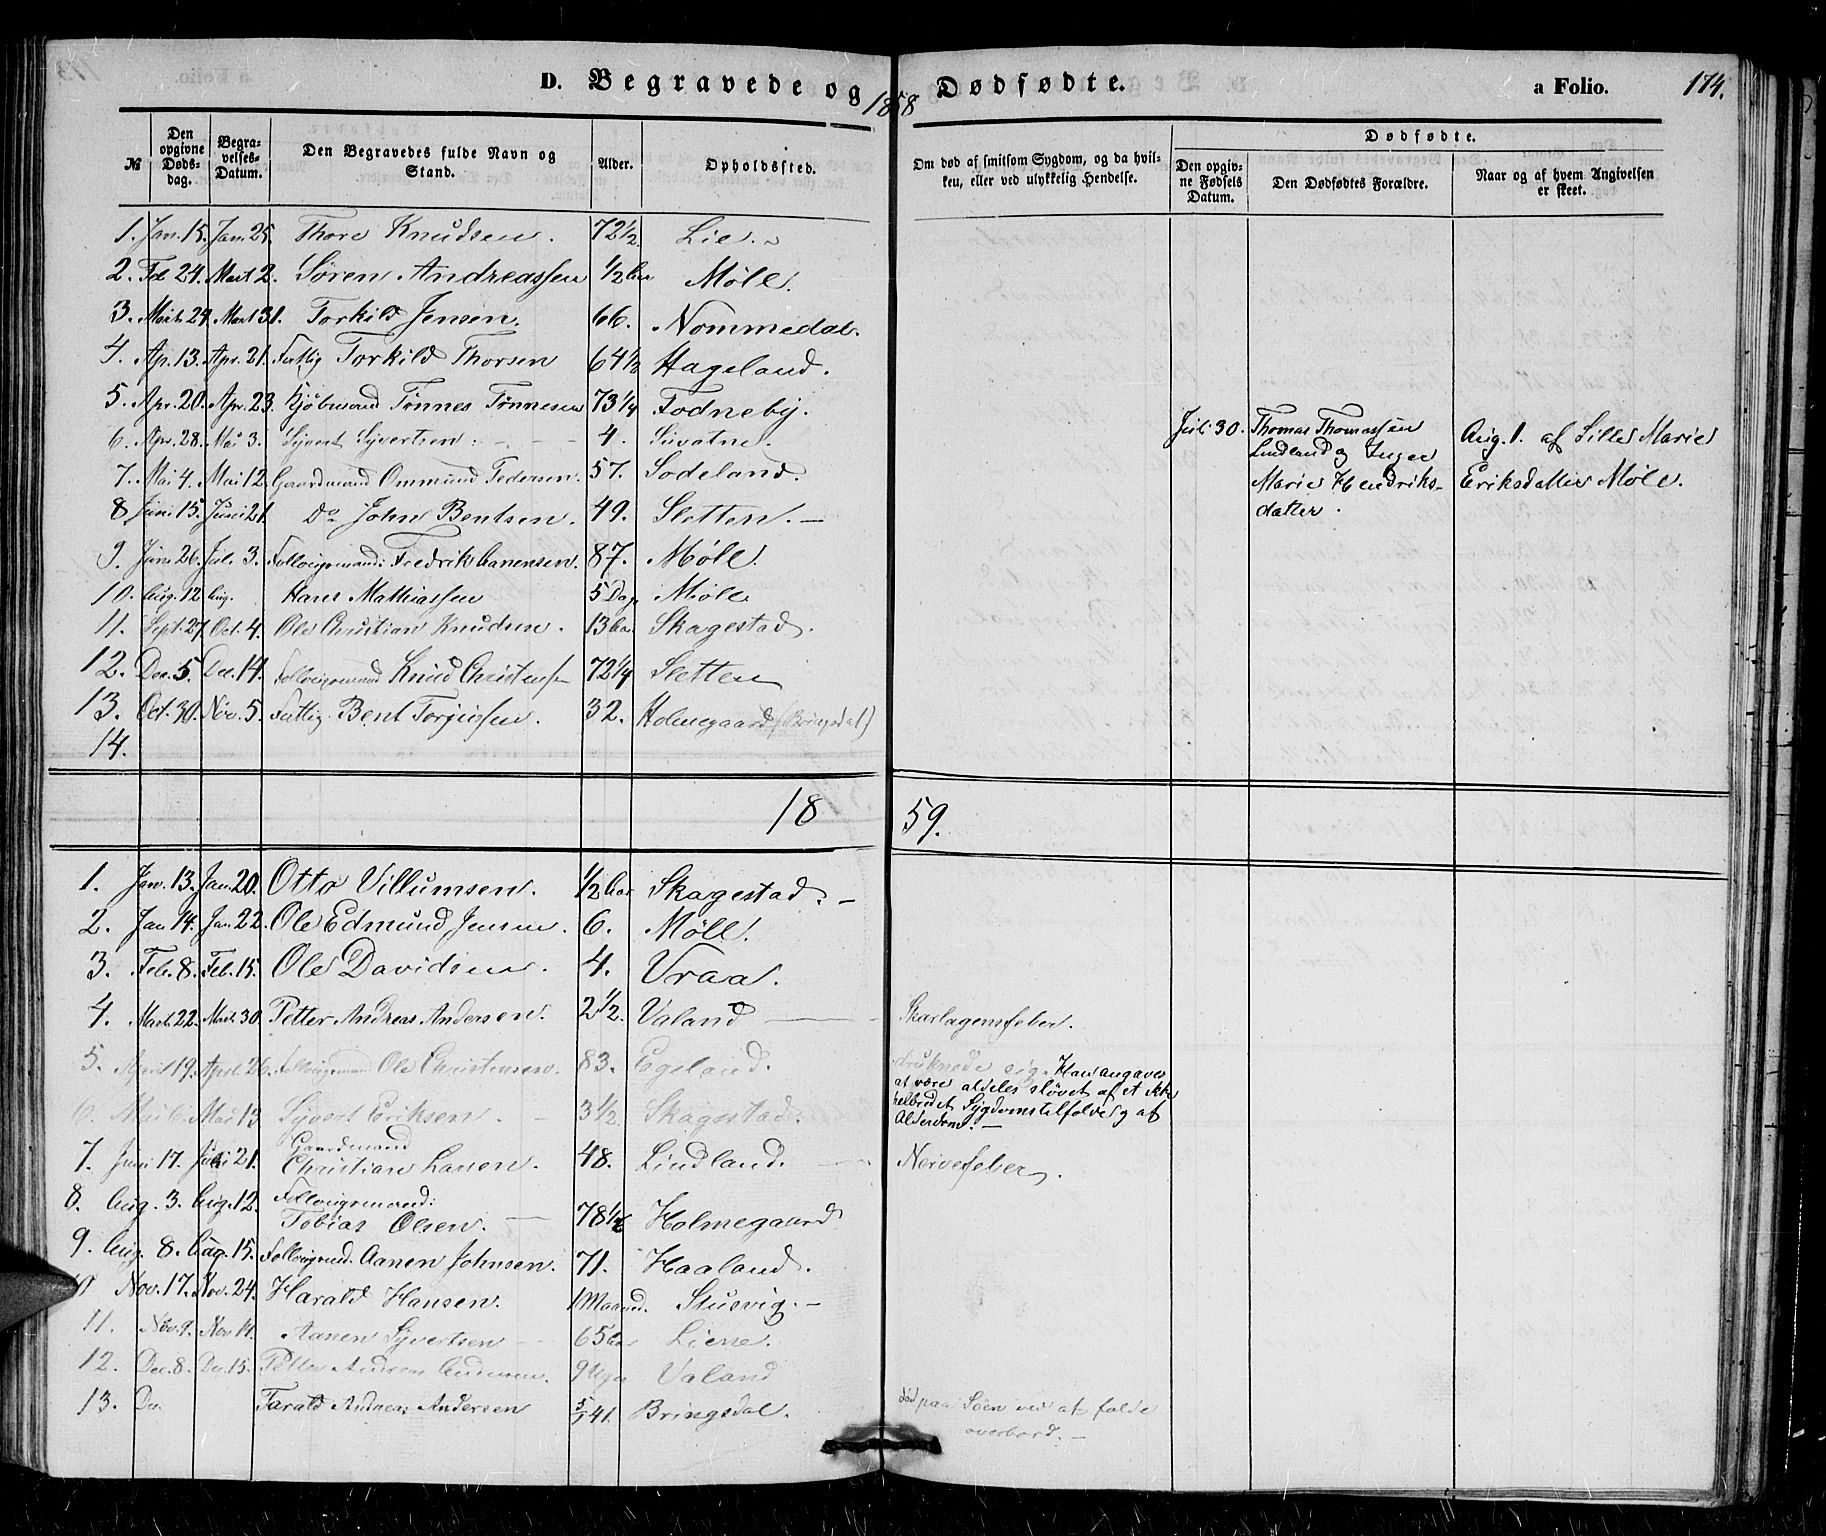 D. Begravede og Dødfødte. a Folio. 174.
1858
№ Den opgivne Døds-dag. Begra-velses-Datum. Den Begravedes fulde Navn og Stand. Alder. Opholdssted. Om død af smitsom Sygdom, og da hvil-ken, eller ved ulykkelig Hendelse. Dødfødte. Den opgiv-ne Fødsels Datum. Den Dødfødtes Forældre. Naar og af hvem Angivelsen er skeet.
1. Jan. 15. Jan. 25. Thore Knudsen. 72 1/2. Lie.
2. Feb 24. Mart 2. Søren Andreassen 1/2 Aar Møll.
3. Mart. 24. Mart 31. Torkild Jensen. 66. Nommedal.
4. Ap. 13. Apr. 21. Fattig Torkild Thorsen 64 1/2 Hageland.
5. Apr. 20. Apr. 23. Kjøbmand Tønnes Tønnesen 73 1/4 Fodneby.
6. Apr. 28. Mai 3. Syvert Syvertsen. 4. Suvatne.
7. Mai 4. Mai 12. Gaardmand Ommund Pedersen. 57. Sodeland.
8. Juni 15. Juni 21. Do John Bentsen. 49. Sletten.
9. Juni 26. Jul. 3. Follougsmand: Fredrik Aanensen. 87. Møll.
10. Aug. 12 Aug. Hans Mathiassen 5 Dage Møll
11. Sept. 27. Oct. 4. Ole Christian Knudsen. 13 Aar. Skagestad.
12. Dec. 5. Dec. 14. Follougsmand Knud Christens. 72 1/4 Sletten
13. Oct. 30. Nov. 5. Fattig. Bent Torjussen. 32. Holmegaard (Bringsdal)
14.
Jul. 30. Thomas Thomassen Aug. 1. af Sille Marie
Lindland og Inger
Marie Hendriks- Eriksdatter Møll.
datter.
1859.
1. Jan. 13. Jan. 20. Otto Villumsen. 1/2 Aar Skagestad.
2. Jan 14. Jan. 22. Ole Edmund Jensen. 6. Møll.
3. Feb. 8. Feb. 15. Ole Davidsen. 4. Vraa.
4. Mart. 22. Mart. 30. Petter Andreas Andersen. 2 1/2. Valand Skarlagensfeber.
5. April 19. April 26. Follougsmand Ole Christensen. 83. Egeland. druknede sig. Han angaves
at være aldeles sløvet af et ikke
helbredet Sygdomstilfælde og af
Alderdom.
6. Mai 6. Mai 13 Syvert Eriksen. 3 1/2. Skagestad.
7. Juni 17. Juni 21. Gaardmand
Christian Larsen. 48. Lindland. Nervefeber.
8. Aug. 3. Aug. 12. Follougsmand:
Tobias Olsen. 78 1/2 Holmegaard
9. Aug. 8. Aug. 15. Follougsmd. Aanen Johnsen. 71. Haaland.
10 Nov. 17. Nov. 24. Harald Hansen. 1 Maaned. Stusvig.
11. Nov. 9. Nov 14. Aanen Syvertsen 65 Aar Liene.
12. Dec. 8. Dec. 15. Petter Andreas Andersen. 9 Uger Valand
13. Dec. Tarald Andreas Andersen 41. Bringsdal. død paa Søen ved at falde
overbord.